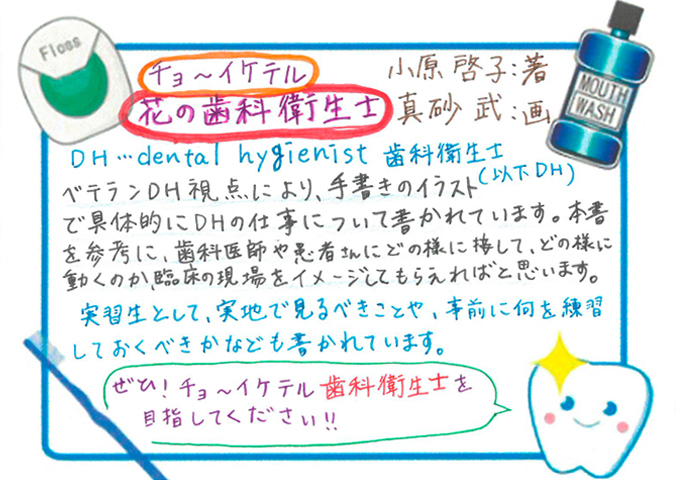 Floss
チョ～イケテル
小原 啓子:著
花の歯科衛生士
真砂 武:画
MOUTH
WASH
DH…dental hygienist 歯科衛生士
(以下DH)
ベテランDH視点により、手書きのイラスト
で具体的にDHの仕事について書かれています。本書
を参考に、歯科医師や患者さんにどの様に接して、どの様に
動くのか、臨床の現場をイメージしてもらえればと思います。
実習生として、実地で見るべきことや、事前に何を練習
しておくべきかなども書かれています。
ぜひ!チョ～イケテル歯科衛生士を
目指してください!!